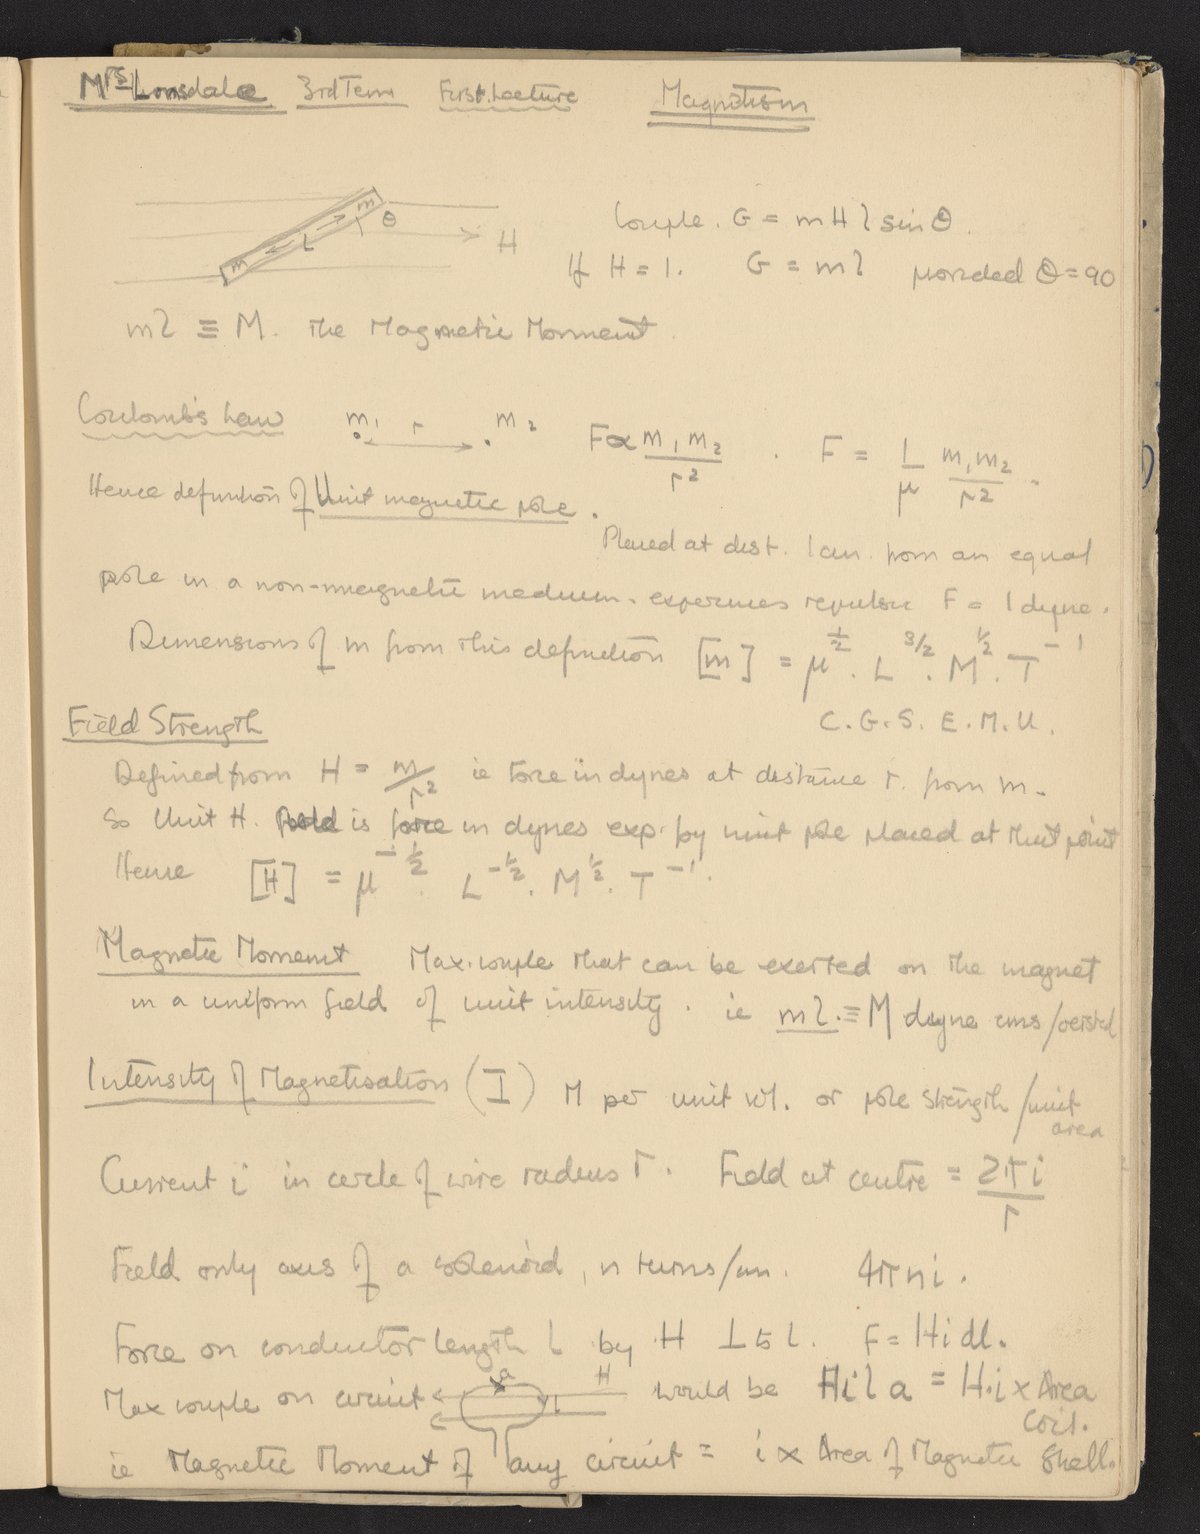 Mrs Lonsdale 3rd Term First Lecture Magnetism
m θ L m H
Couple. G = m H l sin θ.
If H = 1. G = m l provided θ = 90
m l ≡ M. The Magnetic Moment.
Coulomb's Law m₁ r m₂ F ∝ m₁ m₂ / r² . F = 1/μ m₁ m₂ / r² .
Hence definition of Unit magnetic pole.
Placed at dist. 1 cm. from an equal
pole in a non-magnetic medium. experiences repulsive F = 1 dyne.
Dimensions of m from this definition [m] = μ^½ . L^3/2 . M^½ . T^-1
C.G.S. E.M.U.
Field Strength
Defined from H = m/r² ie force in dynes at distance r. from m.
So Unit H. is force in dynes exp. by unit pole placed at that point
Hence [H] = μ^-½ . L^-½ . M^½ . T^-1 .
Magnetic Moment Max. couple that can be exerted on the magnet
in a uniform field of unit intensity. ie m l. ≡ M dyne cms/oersted
Intensity of Magnetisation (I) M per unit vol. or pole strength/unit
area
Current i in circle of wire radius r. Field at centre = 2πi / r
Field only axis of a solenoid, n turns/cm. 4πni.
Force on conductor length l by H ⊥ to l. F = Hidl.
Max couple on circuit a H l would be H i l a = H.i x Area
Coil.
ie Magnetic Moment of any circuit = i x Area of Magnetic Shell.